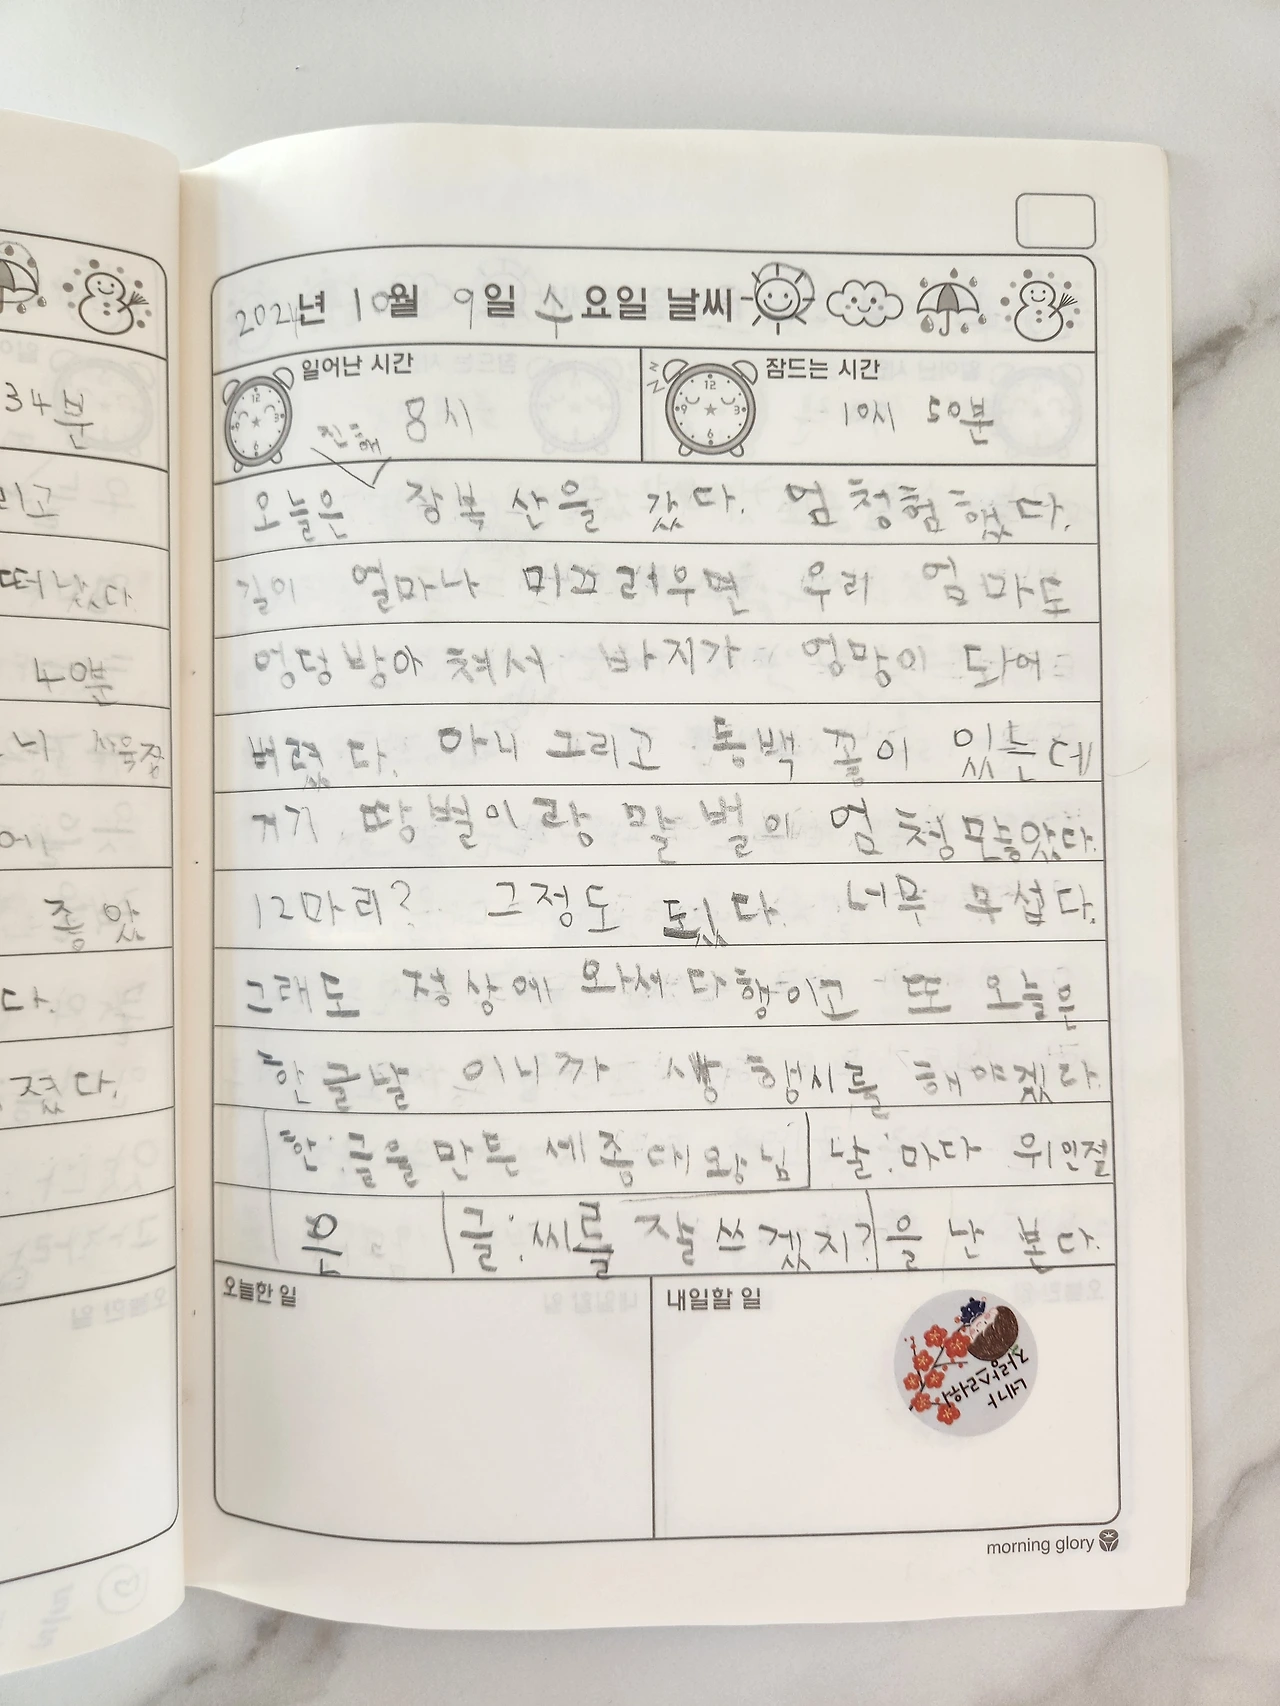 34분
리고
떠났다
4 0분
니
에
좋았
다.
졌다.
2024년 10월 9일 수요일 날씨
일어난 시간
8시
잠드는 시간
10시 50분
진해
오늘은 장복 산을 갔다. 엄청험했다.
길이 얼마나 미끄러우면 우리 엄마도
엉덩방아 쳐서 바지가 엉망이 돠에
버렸다. 아니 그리고 동백 꽃이 있는데
거기 땅벌이랑 말벌이 엄청많았다.
12마리? 그정도 됬다. 너무 무섭다.
그래도 정상에 와서 다행이고 또 오늘은
한글날 이니까 생행시를 해야겠라.
한:글을 만든 세종대왕님 날:마다 위인절
은 글:씨를 잘 쓰겠지? 을 난 본다.
오늘한 일
내일할 일
네가
자랑스러워
morning glory